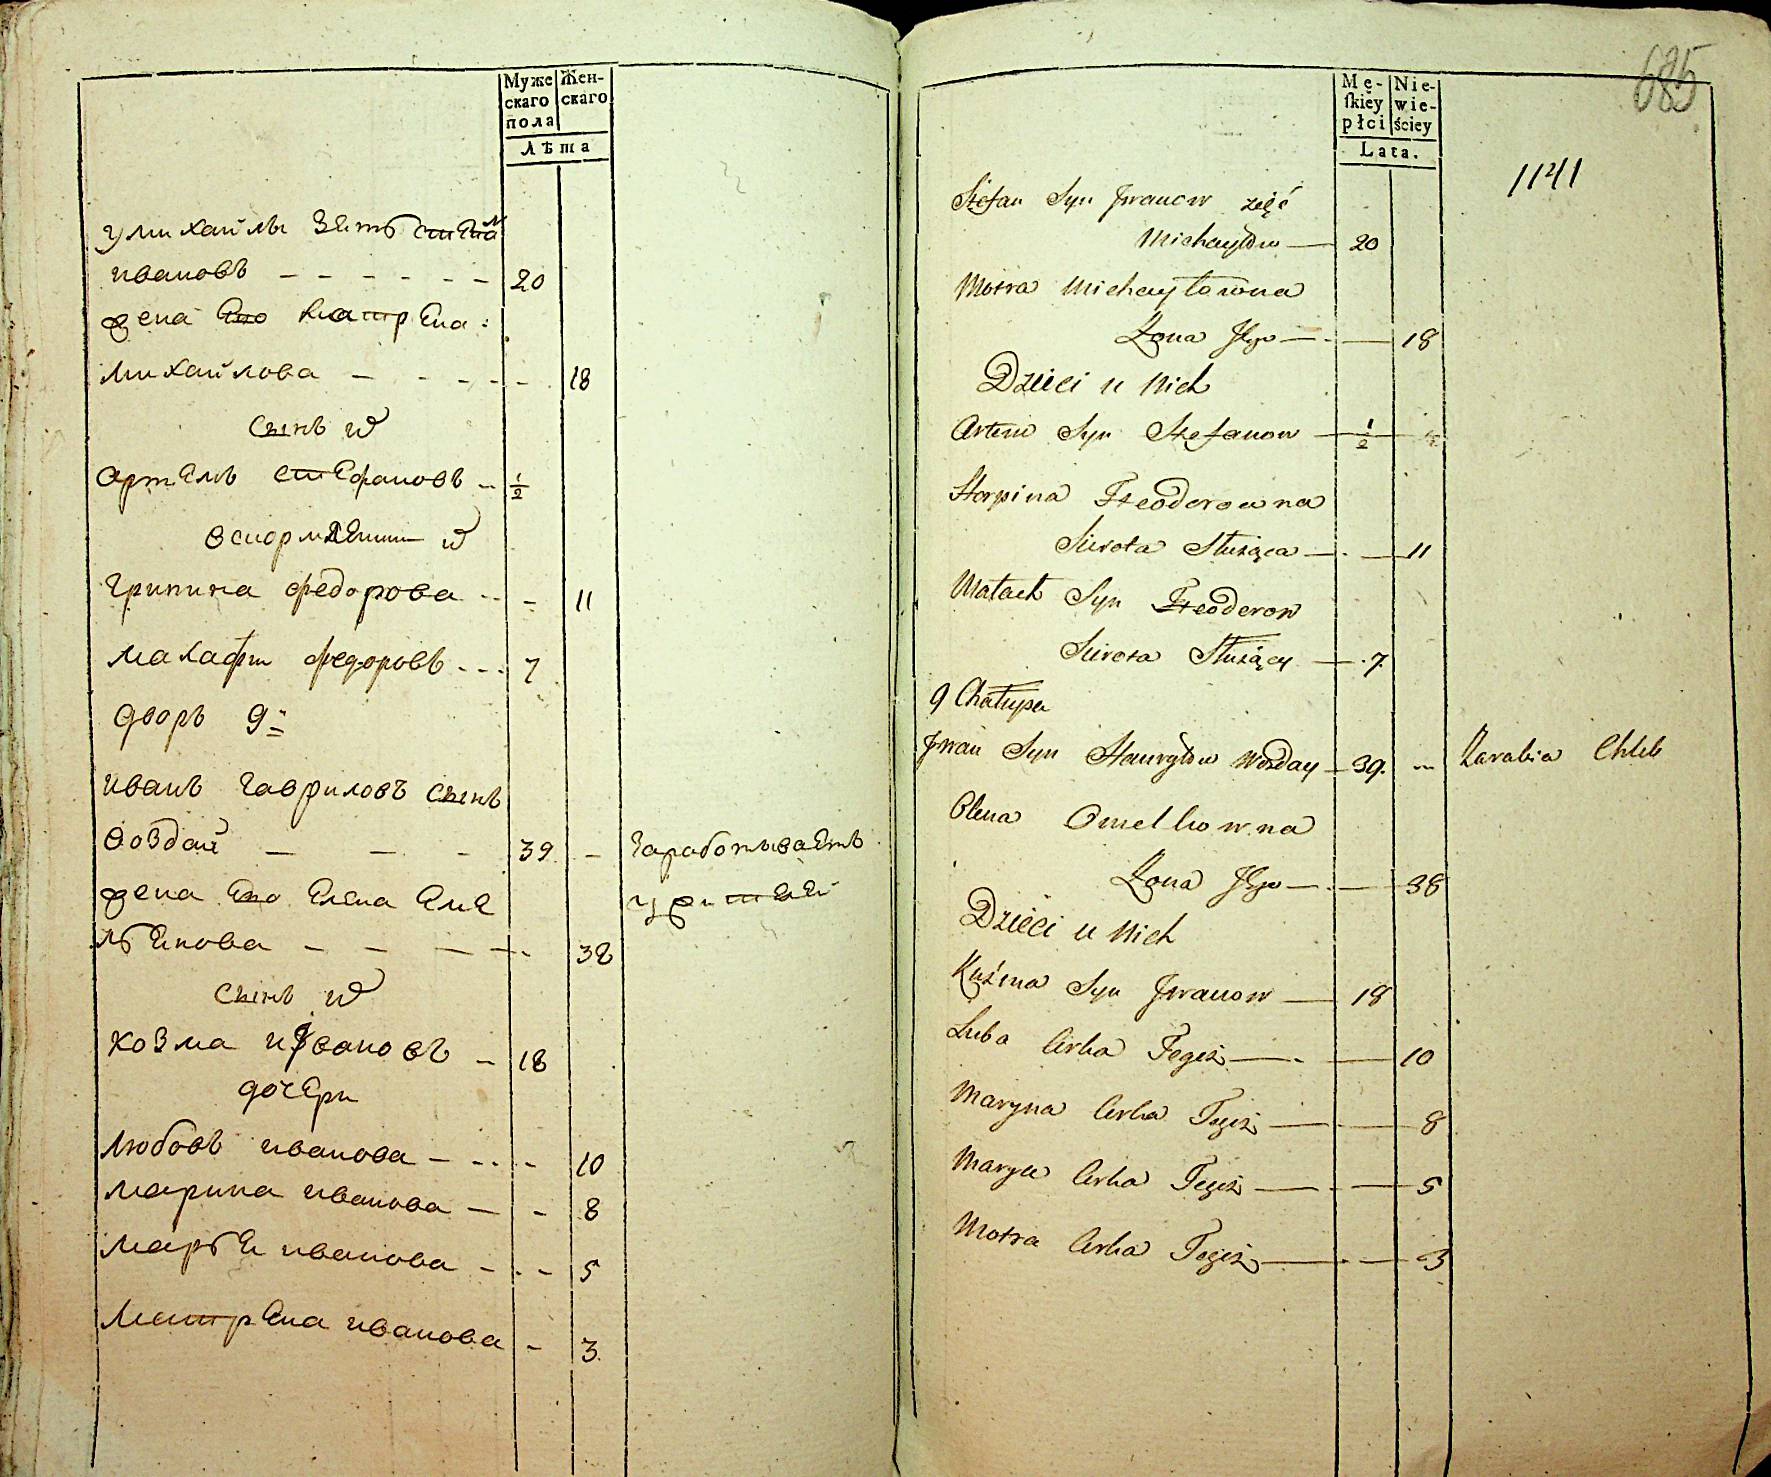 Муже
скаго
пола
Жен-
скаго
Лѣта
у михайлы зять степа
ивановъ - - - - - - 20
жена его матрена
михайлова - - - - - 18
сынъ их
артемъ степановъ - 1/2
вскормленники их
грипина федорова - - - 11
малафти федоровъ - - - 7
дворъ 9й
иванъ гавриловъ сынъ
воздай - - - 39 - зарабатываетъ
жена его елена еме
льянова - - - - - 38
сынъ их
козма ивановъ - 18
дочери
любовъ иванова - - - - 10
марина иванова - - 8
марья иванова - - - 5
матрена иванова - 3
685
Mę-
ſkiey
płci
Nie-
wie-
ściey
Lata.
1141
Stefan Syn Jwanow zięć
Michayłow - 20
Motra Michayłowna
Żona Jego - - - 18
Dzieci u Nich
Artem Syn Stefanow - 1/2
Horpina Fteodorowna
Sierota Służąca - - - 11
Małach Syn Fteodorow
Sierota Służący - 7
9 Chałupa
Jwan Syn Hawryłow Wozday - 39. - Zarabia Chleb
Olena Omelkowna
Żona Jego - - - 38
Dzieci u Nich
Kuźma Syn Jwanow - 18
Luba Corka Tegoż - - - 10
Maryna Corka Tegoż - - 8
Marya Corka Tegoż - - - 5
Motra Corka Tegoż - - - 3